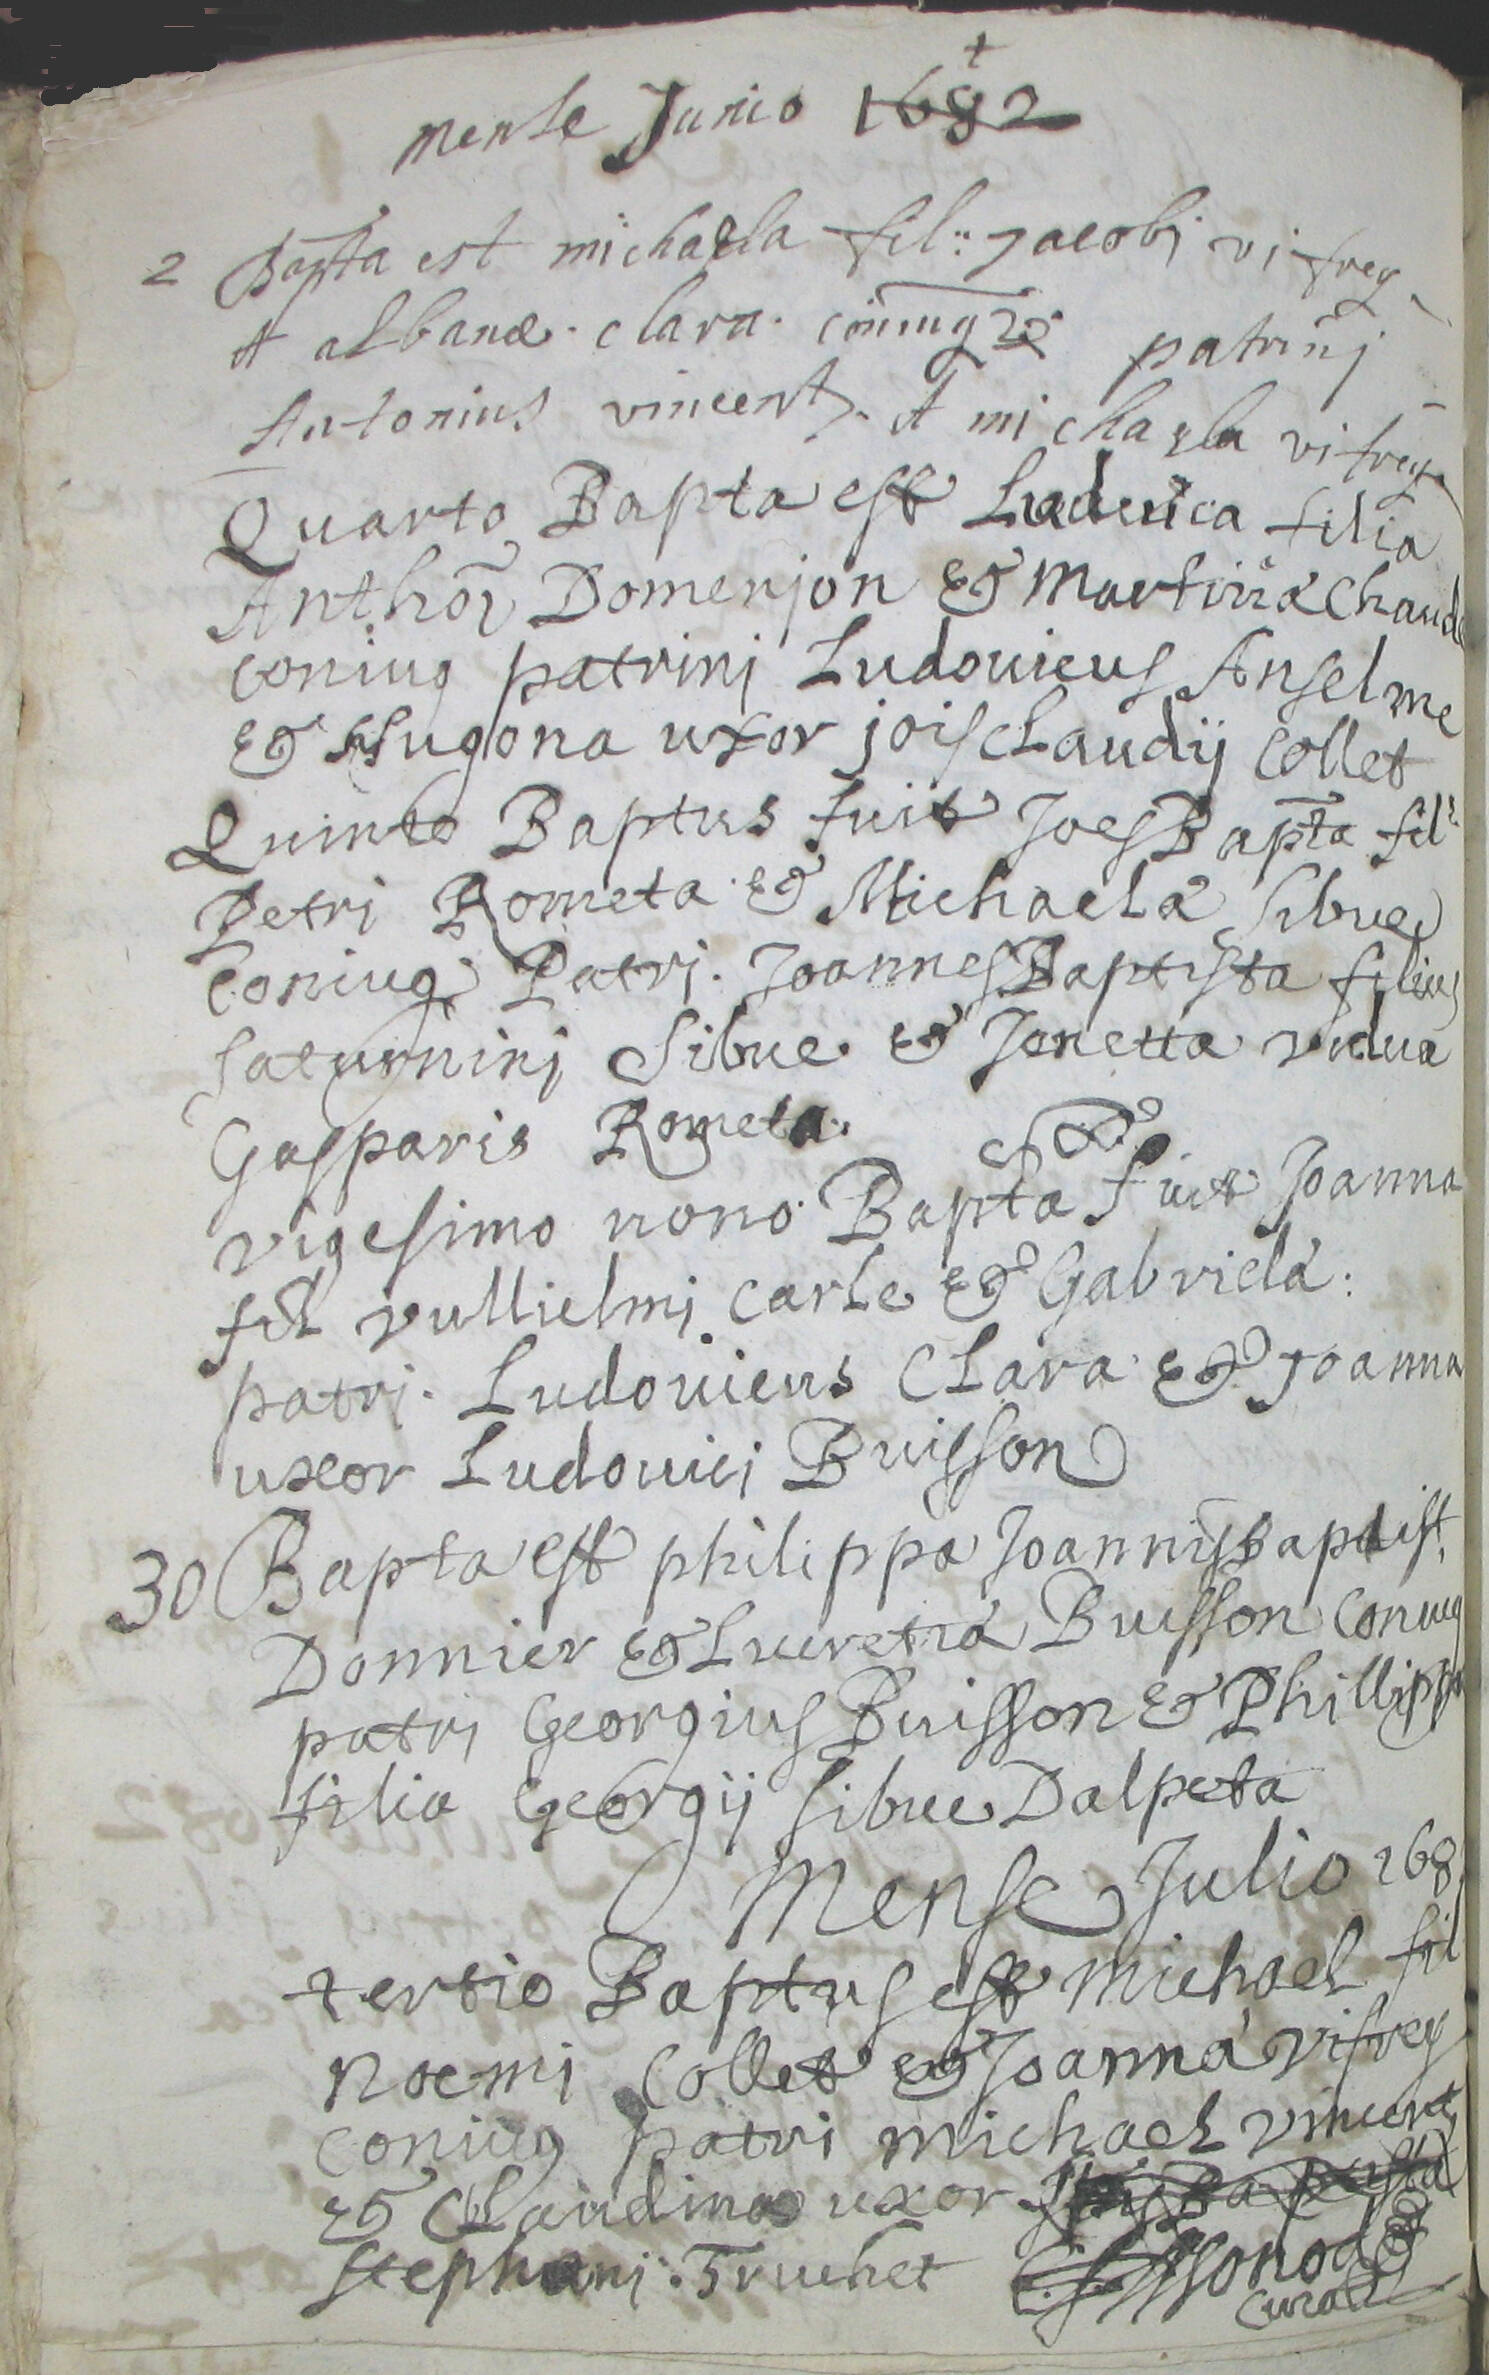 mense Junio 1682
2 Bapta est michaela fil: Jacobi vifrey
et albanæ clara coniug patrinj
Antonius vincent et michaela vifrey
Quarto Bapta est Ludovica filia
Domenjon & Martina Chaude
coniug patrinj Ludovicus Anselme
& Hugona uxor jois Claudij Collet
Quinto Baptus fuit Joes Bapta fil:
Petri Rometa & Michaela Sibue
Coniug Patrj. Joannes Baptista filius
Saturninj Sibue & Jonetta vidua
Gasparis Rometa.
vigesimo nono Bapta fuit Joanna
fil vullielmj Carle & Gabriela:
patrj. Ludovicus Clara & Joanna
uxor Ludovici Buisson
30 Bapta est philippa Joannis baptist.
Donnier & Lucretia Buisson Coniug
patrj Georgius Buisson & Phillippa
filia Georgij Sibue Dalpeta
Mense Julio 168
tertio Baptus est Michael fil
Noemj Collet & Joanna vifrey
Coniug patri michael vincent
& Claudina uxor
Stephanj Truchet
Curat